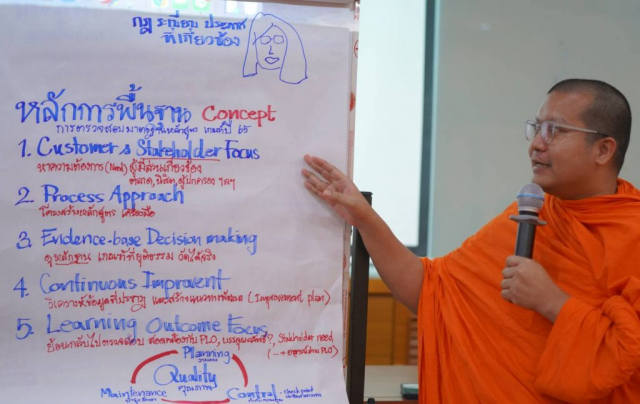 กฎ ระเบียบ ประกาศ
ที่เกี่ยวข้อง
หลักการพื้นฐาน Concept
การตรวจสอบมาตรฐานหลักสูตร เกณฑ์ปี 65
1. Customer & Stakeholder Focus
หาความต้องการ (Need) ผู้มีส่วนเกี่ยวข้อง
ตลาด, นิสิต, ผู้ปกครอง ฯลฯ
2. Process Approach
โครงสร้างหลักสูตร เครื่องมือ
3. Evidence-base Decision making
ดูหลักฐาน เกณฑ์ที่ยุติธรรม วัดได้จริง
4. Continuous Improvent
วิเคราะห์ข้อมูล และสร้างแนวทางพัฒนา (Improvement plan)
5. Learning Outcome Focus
ย้อนกลับไปตรวจสอบ สอดคล้องกับ PLO, บรรลุผลลัพธ์?, Stakeholder need,
PLO)
Planning
วางแผน
Quality
คุณภาพ
Maintenance Control - check point
บำรุงรักษา